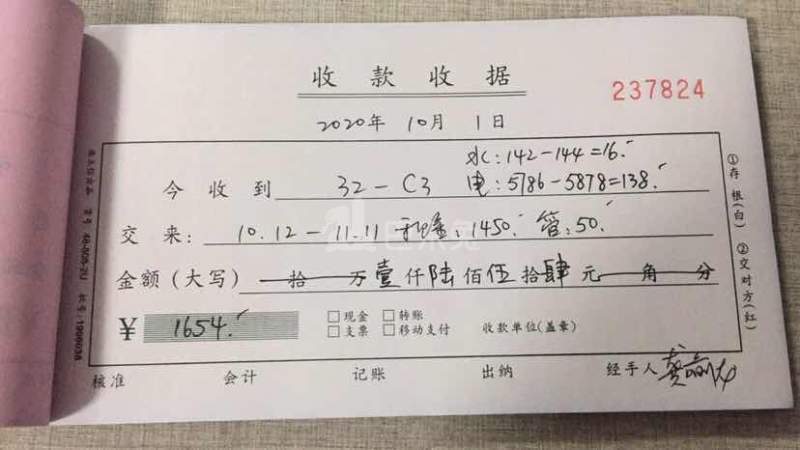 收款收据
237824
2020年 10月 1日
水:142-144=16.
今收到 32-C3 电:5786-5878=138.
交来: 10.12-11.11 租金:1450. 管:50.
金额(大写) 拾 万壹仟陆佰伍拾肆元 角 分
¥ 1654. □现金 □转账
□支票 □移动支付 收款单位(盖章)
核准 会计 记账 出纳 经手人
①存根(白) ②交对方(红)